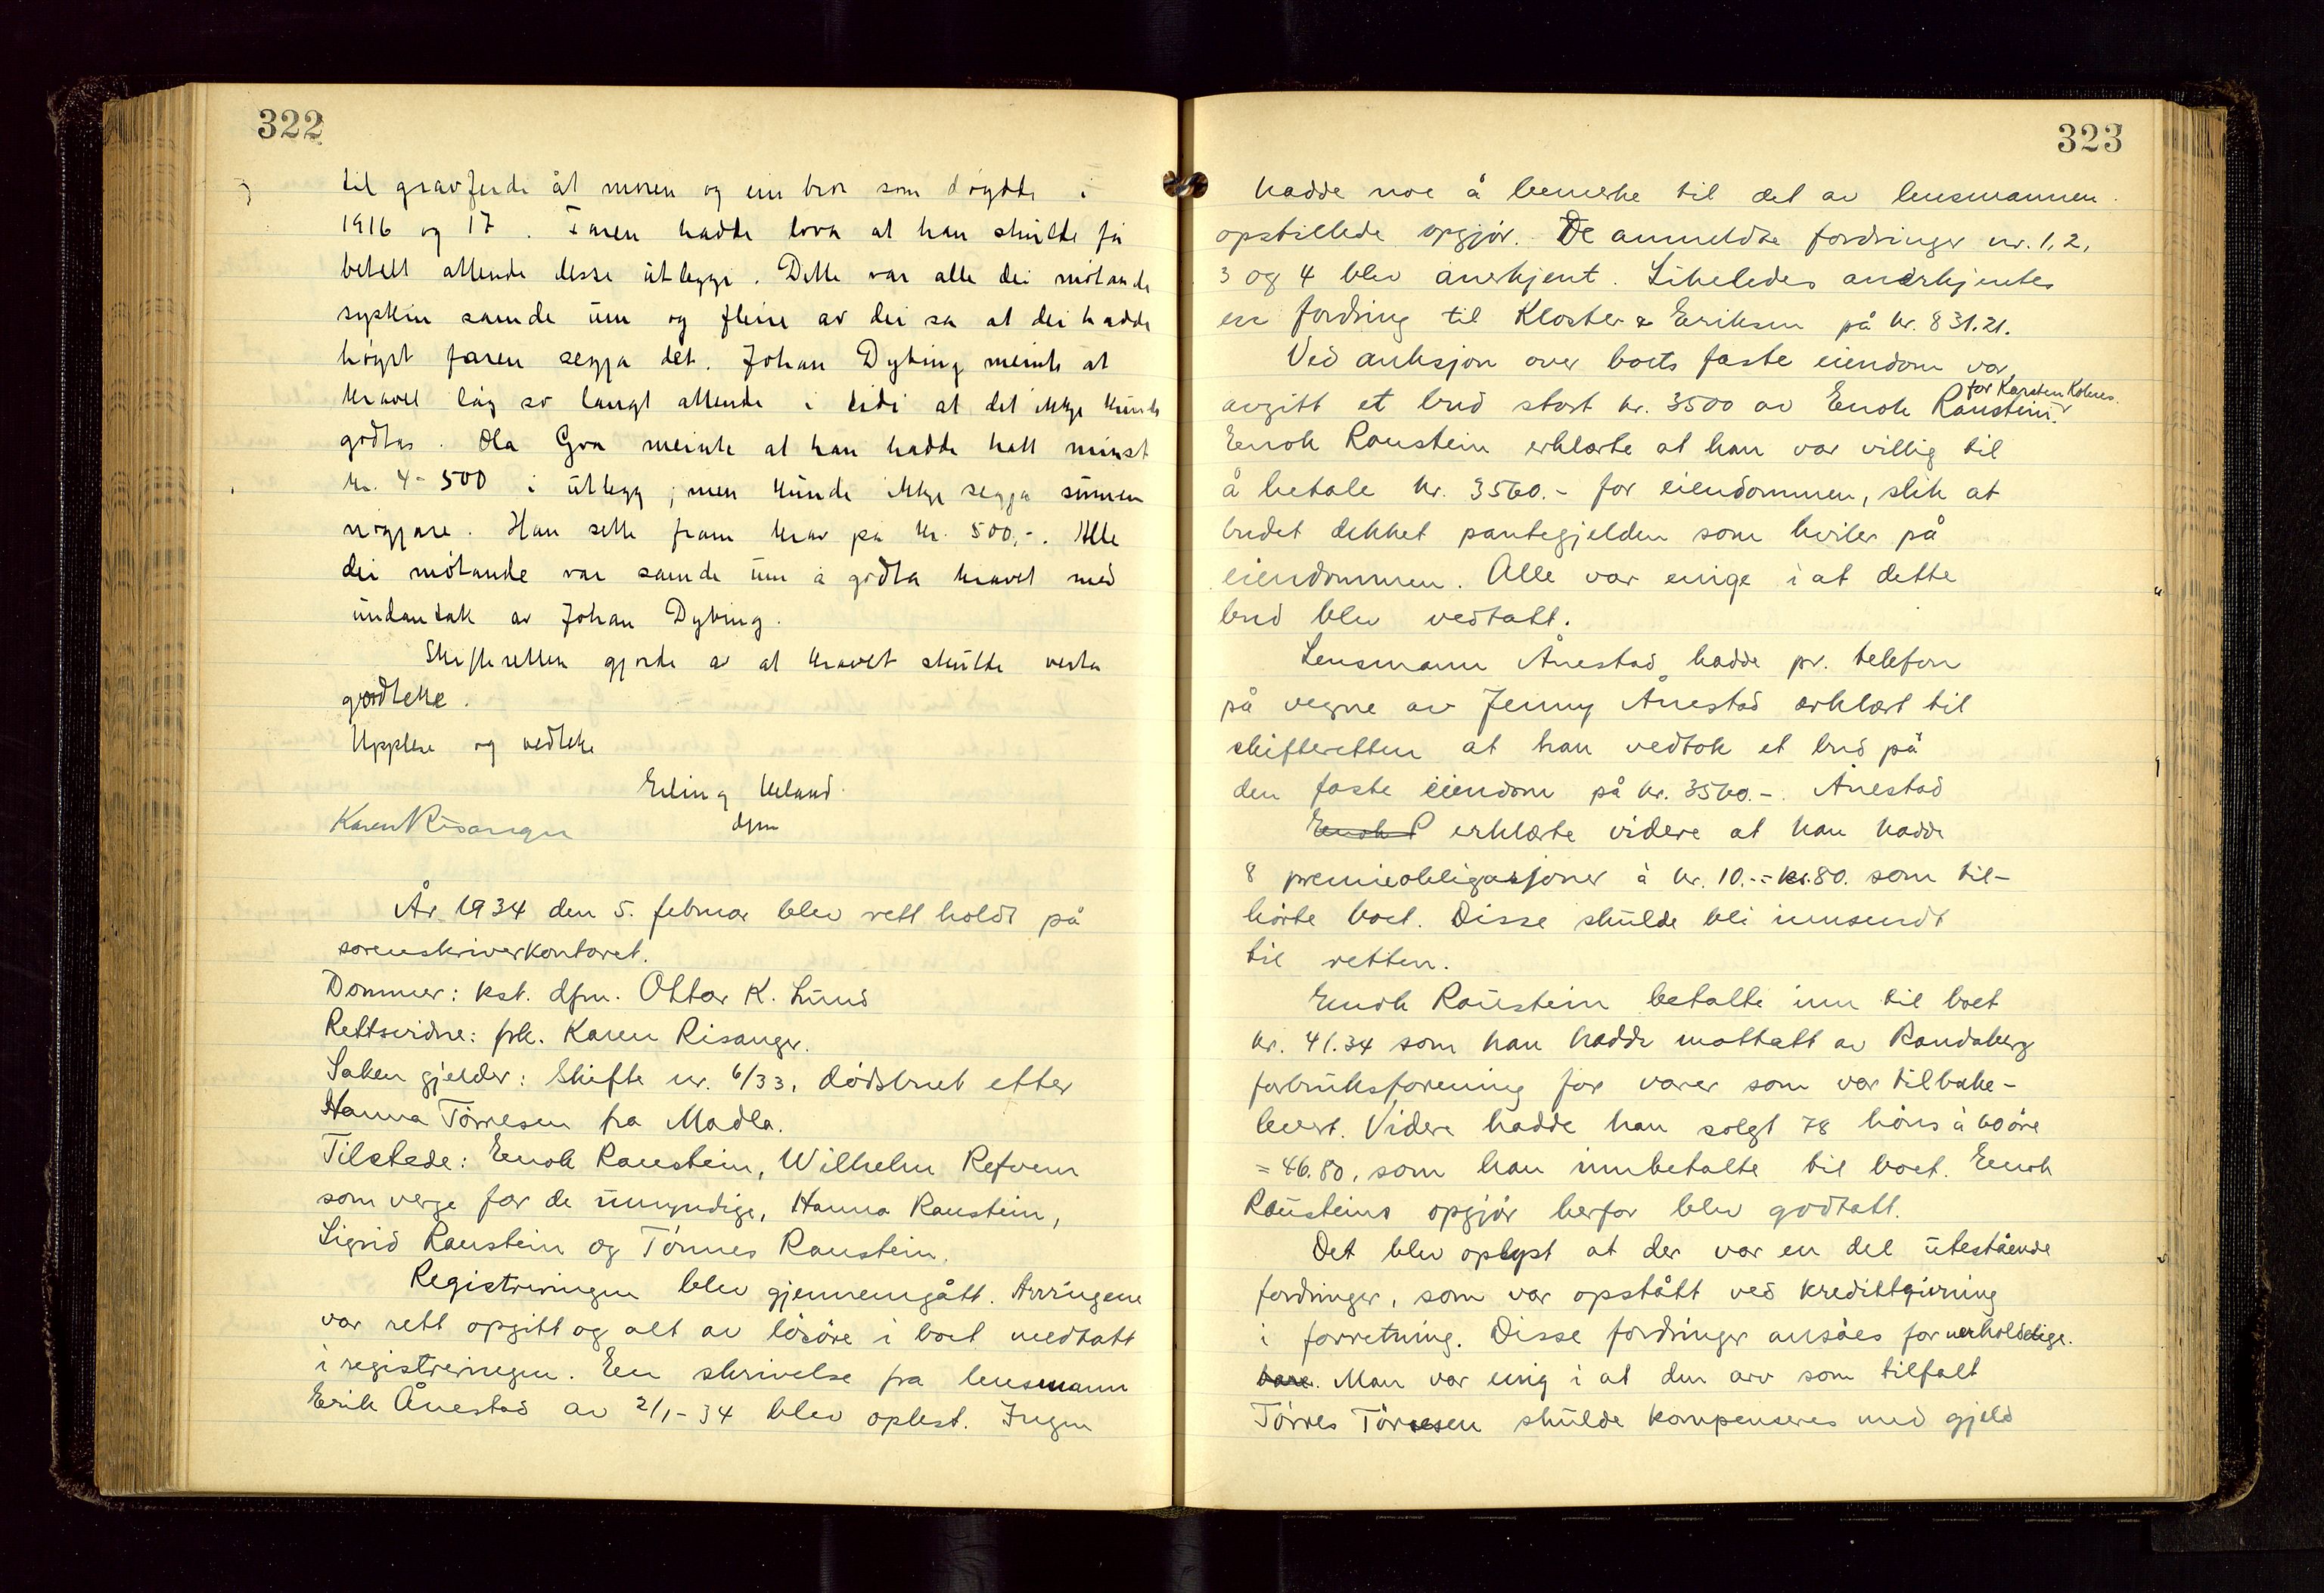 322
til gravferda åt moren og ein bror som døydde i
1916 og 17. Faren hadde lova at han skulde få
betalt attende desse utleggi. Dette var alle dei møtande
syskin samde um og fleire av dei sa at dei hadde
høyrt faren segja det. Johan Dybing meinte at
kravet låg so langt attende i tidi at det ikkje kunde
godtas. Ola Gra meinte at han hadde hatt minst
kr. 4-500 i utlegg, men kunde ikkje segja summen
nøgjare. Han sette fram krav på kr. 500,-. Alle
dei møtande var samde um å godta kravet med
undantak av Johan Dybing.
Skifteretten gjorde av at kravet skulde verta
godteke.
Upplese og vedteke
Erling Ueland
dfm
Karen Risanger
År 1934 den 5. februar blev rett holdt på
sorenskriverkontoret.
Dommer: kst. dfm. Ottar K. Lund
Rettsvidne: frk. Karen Risanger.
Saken gjelder: Skifte nr. 6/33, dødsbuet efter
Hanna Tørresen fra Madla.
Tilstede: Enok Raustein, Wilhelm Refvem
som verge for de umyndige, Hanna Raustein,
Sigrid Raustein og Tønnes Raustein.
Registreringen blev gjennemgått. Arvingene
var rett opgitt og alt av løsøre i boet medtatt
i registreringen. En skrivelse fra lensmann
Erik Ånestad av 2/1-34 blev oplest. Ingen
323
hadde noe å bemerke til det av lensmannen
opstillede opgjør. De anmeldte fordringer nr. 1, 2,
3 og 4 blev anerkjent. Likeledes anerkjentes
en fordring til Kloster & Eriksen på kr. 831.21.
Ved auksjon over boets faste eiendom var
for Karsten Kolnes.
avgitt et bud stort kr. 3500 av Enok Raustein.
Enok Raustein erklærte at han var villig til
å betale kr. 3560.- for eiendommen, slik at
budet dekket pantegjelden som hviler på
eiendommen. Alle var enige i at dette
bud blev vedtatt.
Lensmann Ånestad hadde pr. telefon
på vegne av Jenny Ånestad erklært til
skifteretten at han vedtok et bud på
den faste eiendom på kr. 3560.-. Ånestad
Enok R erklærte videre at han hadde
8 premieobligasjoner à kr. 10.- = kr. 80. som til-
hørte boet. Disse skulde bli innsendt
til retten.
Enok Raustein betalte inn til boet
kr. 41.34 som han hadde mottatt av Randaberg
forbruksforening for varer som var tilbake-
levert. Videre hadde han solgt 78 høns à 60 øre
= 46.80, som han innbetalte til boet. Enok
Rausteins opgjør herfor blev godtatt.
Det blev oplyst at der var en del utestående
fordringer, som var opstått ved kredittgivning
i forretning. Disse fordringer ansåes for uerholdelige.
bare. Man var enig i at den arv som tilfalt
Tørres Tørresen skulde kompenseres med gjeld